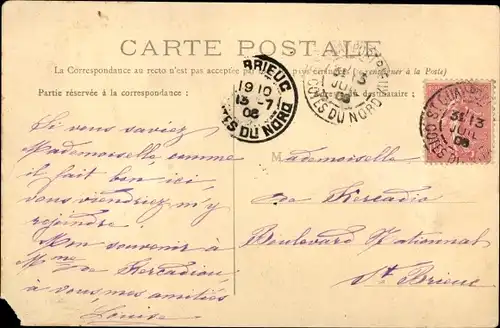 CARTE POSTALE
La Correspondance au recto n'est pas acceptée par à la Poste)
Partie réservée à la correspondance :
destinataire :
BRIEUC
19 10
13 -7
08
CÔTES DU NORD
13
JUIL
08
CÔTES DU NORD
13
JUIL
08
CÔTES DU
Si vous saviez
Mademoiselle comme
il fait bon ici,
vous viendriez m'y
rejoindre.
Mon souvenir à
Mme de Kercadiou,
à vous mes amitiés
Louise
Mademoiselle
de Kercadio
Boulevard National
St Brieuc